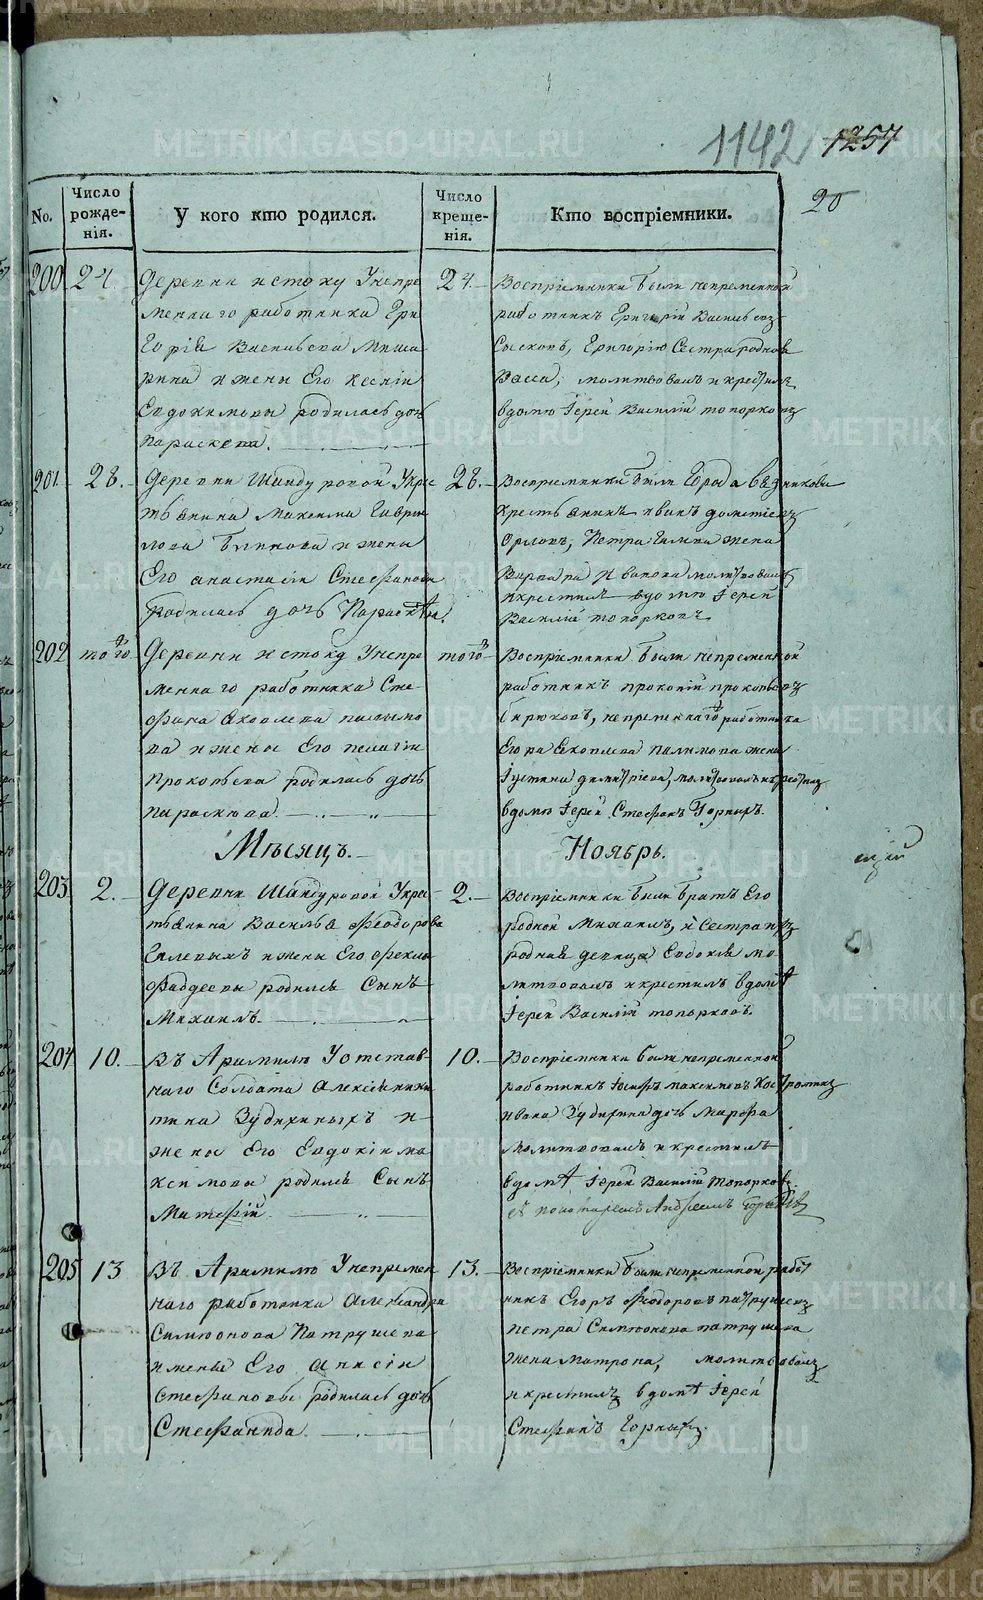 1142 1257
20
No.
Число рожде-нія.
У кого кто родился.
Число креще-нія.
Кто воспріемники.
200
24.
Деревни истоку Унепре
меннаго работника Гри
горія Васильева
и жены Его Ксеніи
Евдокимовы родилась дочь
Параскева.
24.
Воспріемники были непременной
работникъ Григорій Васильевъ
Сысковъ, Григорію Сестра родная
Васса, молитвовалъ и крестилъ
вдомѣ Іерей Василій топорковъ
201
28.
Деревни Шандуровой Укрес
тьянина Максима Гаври
лова Блинова и жены
Его анастасіи Стефановы
родилась дочь Параскева.
28.
Воспріемники были Города
крестьянинъ иванъ
Орловъ, Петра жена
Варвара Иванова молитвовалъ
икрестилъ вдомѣ Іерей
Василій топорковъ
202
того
Деревни истоку Унепре
меннаго работника Сте
фана Яковлева
ва и жены Его пелагіи
Прокопьева родилась дочь
параскева.
того
Воспріемники были непременной
работникъ прокопій прокопьевъ
бирюковъ, непременнаго работника
Егора Яковлева жена
Іустина димитріева, молитвовалъ и крестилъ
вдомѣ Іерей Стефанъ Горныхъ.
Мѣсяцъ.
Ноябрь.
203
2.
Деревни Шандуровой Укрес-
тьянина Василья Феодорова
и жены Его Феклы
Фаддеевы родился Сынъ
Михаилъ.
2.
Воспріемники были братъ Его
родной Михаилъ, и Сестра
родная девица Евдокія мо
литвовалъ икрестилъ вдомѣ
Іерей Василій топорковъ.
204
10.
Въ Арамилю Уотстав-
наго Солдата Алексея ники
тина Зудихиныхъ и
жены Его Евдокіи ма
ксимовы родился Сынъ
Матвій
10.
Воспріемники были непременной
работникъ Іосифъ максимовъ
ивана Зудихина дочь Марфа
молитвовалъ икрестилъ
вдомѣ Іерей Василій топорковъ
Андреемъ
205
13
Въ Арамилю Унепремен
наго работника Александра
Симионова Патрушева
и жены Его Анисіи
Стефановы родилась дочь
Стефанида.
13.
Воспріемники были непременной работ
никъ Егоръ Феодоровъ патрушевъ
петра Симионова патрушева
жена матрона, молитвовалъ
икрестилъ вдомѣ Іерей
Стефанъ Горныхъ.
METRIKI.GASO-URAL.RU